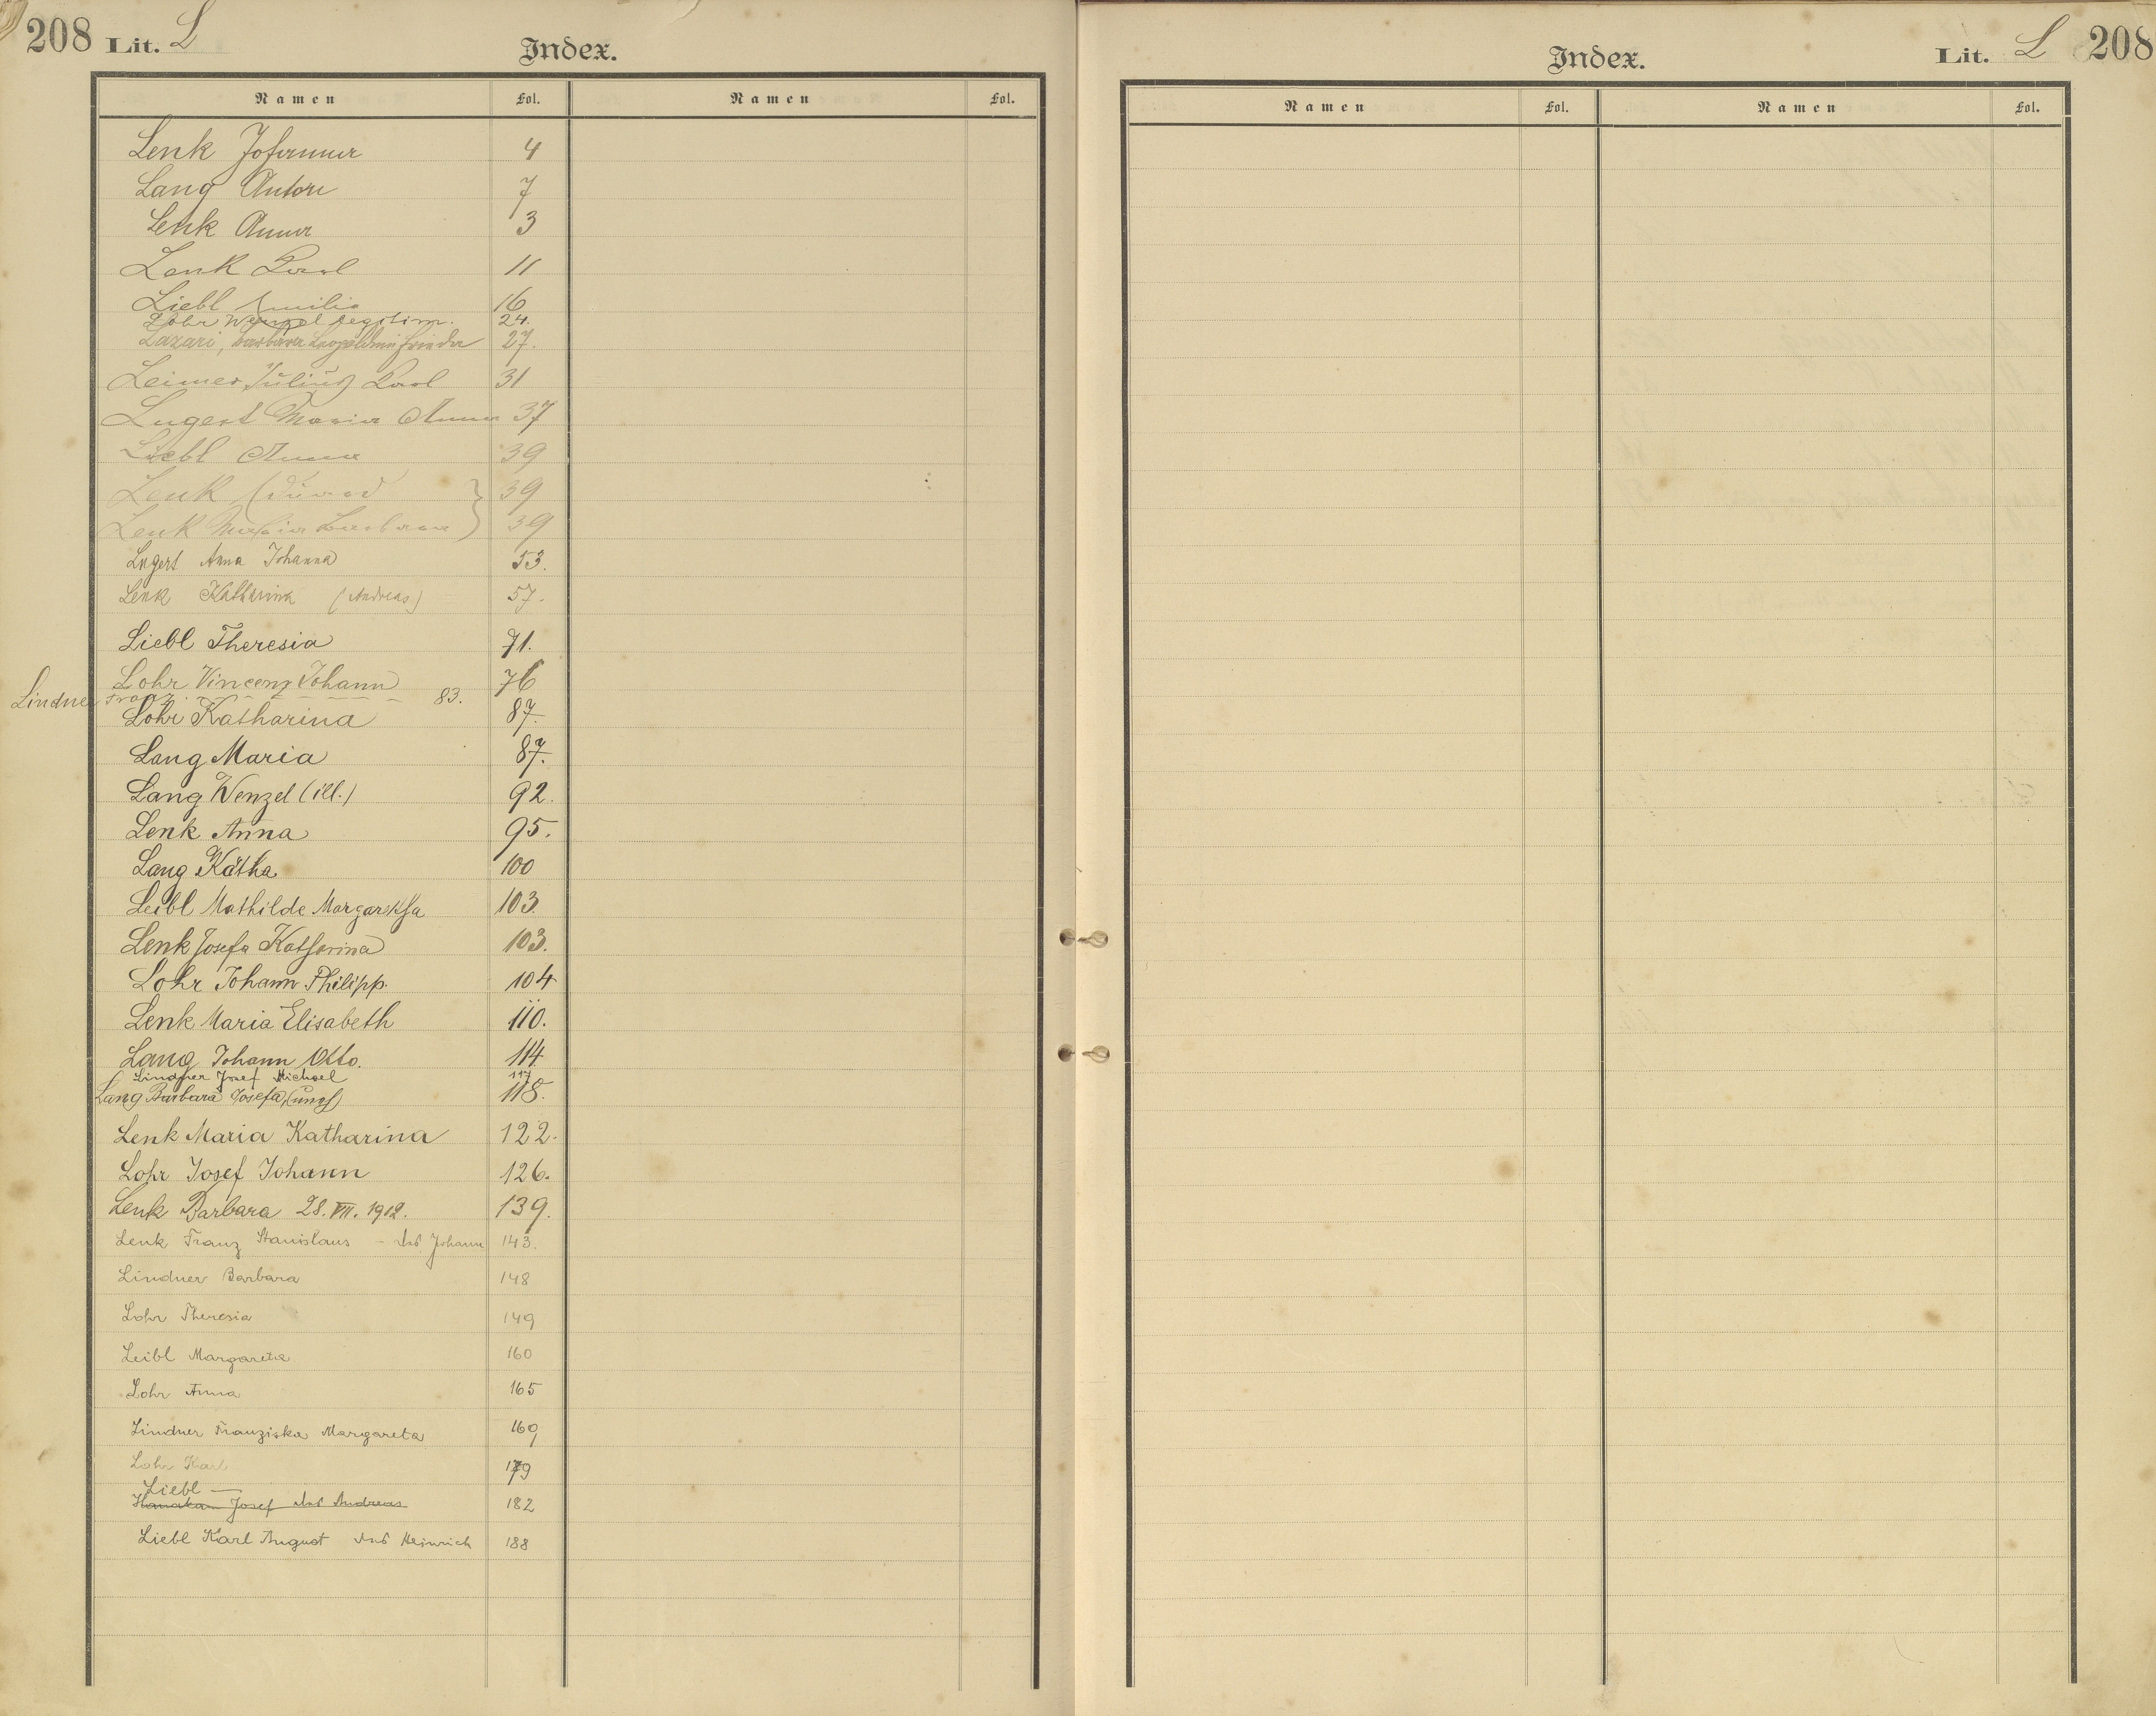 208 Lit. L
Index.
Namen Fol. Namen Fol.
Lenk Johanna 4
Lang Anton 7
Lenk Anna 3
Lenk Karl 11
Liebl Emilie 16
Lohr Wenzel legitim. 24.
Lazari, Barbara Leopoldine 27.
Leimer Julius Karl 31
Lugert Maria Anna 37
Liebl Anna 39
Lenk Eduard } 39
Lenk Maria Barbara } 39
Lugert Anna Johanna 53.
Lenk Katharina (Andreas) 57.
Liebl Theresia 71.
Lohr Vincenz Johann 76
Lindner Franz 83.
Lohr Katharina 87.
Lang Maria 87.
Lang Wenzel (ill.) 92.
Lenk Anna 95.
Lang Kätha 100
Leibl Mathilde Margaretha 103.
Lenk Josefa Katharina 103.
Lohr Johann Philipp. 104
Lenk Maria Elisabeth 110.
Lang Johann Otto. 114
Lindner Josef Michael 117
Lang Barbara Josefa, 118.
Lenk Maria Katharina 122.
Lohr Josef Johann 126.
Lenk Barbara 28. VII. 1912. 139.
Lenk Franz Stanislaus - des Johann 143.
Lindner Barbara 148
Lohr Theresia 149
Leibl Margareta 160
Lohr Anna 165
Lindner Franziska Margareta 169
Lohr Karl 179
Liebl —
Josef des Andreas 182
Liebl Karl August des Heinrich 188
Index.
Lit. L 208
Namen Fol. Namen Fol.